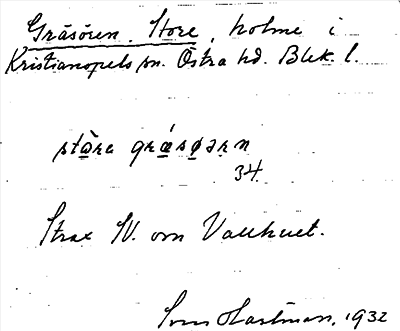 Gräsören, Store, holme i
Kristianopels sn. Östra hd. Blek. l.
stòra grǽsøərn
34.
Strax N. om Vallhuet.
Sven Hartman, 1932